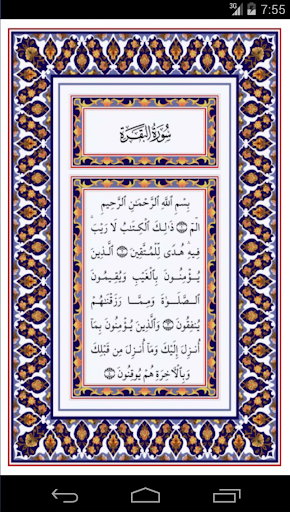 3G 7:55
سُورَةُ البَقَرَةِ
بِسْمِ اللَّهِ الرَّحْمَٰنِ الرَّحِيمِ
الٓمٓ ۝ ذَٰلِكَ الْكِتَٰبُ لَا رَيْبَ ۛ
فِيهِ ۛ هُدًى لِّلْمُتَّقِينَ ۝ الَّذِينَ
يُؤْمِنُونَ بِالْغَيْبِ وَيُقِيمُونَ
الصَّلَوٰةَ وَمِمَّا رَزَقْنَٰهُمْ
يُنفِقُونَ ۝ وَالَّذِينَ يُؤْمِنُونَ بِمَا
أُنزِلَ إِلَيْكَ وَمَا أُنزِلَ مِن قَبْلِكَ
وَبِالْآخِرَةِ هُمْ يُوقِنُونَ ۝